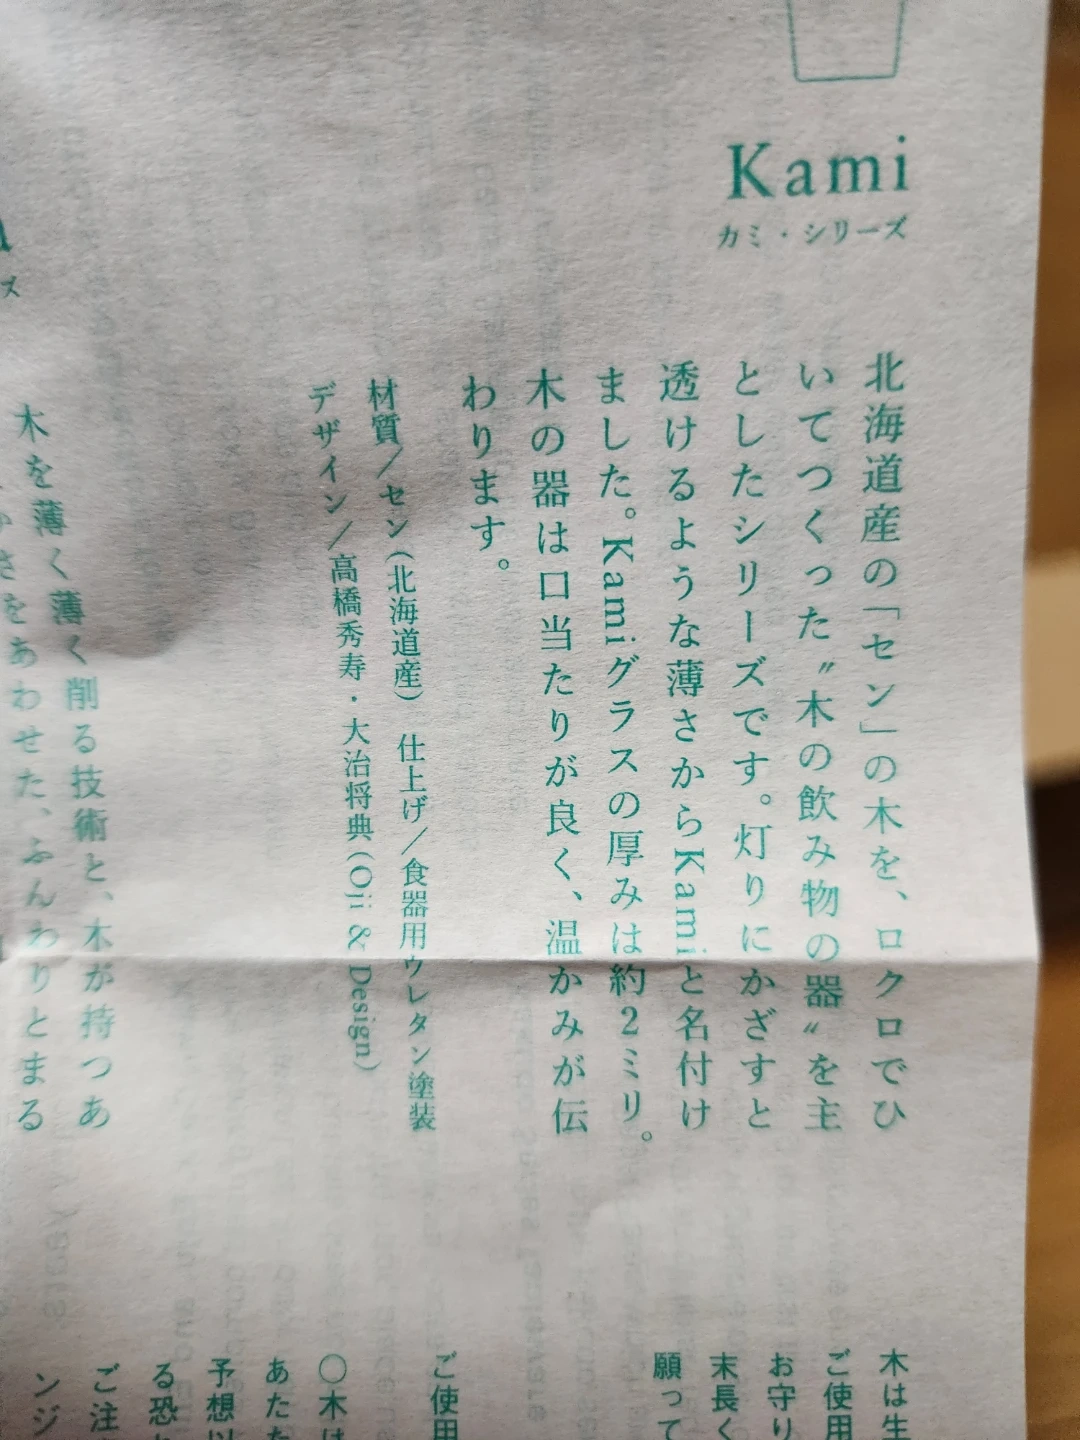 Kami
カミ・シリーズ
北海道産の「セン」の木を、ロクロでひ
いてつくった〝木の飲み物の器〟を主
としたシリーズです。灯りにかざすと
透けるような薄さからKamiと名付け
ました。Kamiグラスの厚みは約2ミリ。
木の器は口当たりが良く、温かみが伝
わります。
材質／セン（北海道産） 仕上げ／食器用ウレタン塗装
デザイン／高橋秀寿・大治将典（Oji & Design）
ス
木を薄く薄く削る技術と、木が持つあ
さをあわせた、ふんわりとまる
木は生
ご使用
お守り
末長く
願って
ご使用
〇木は
あたた
予想以
る恐れ
ご注
ンジ